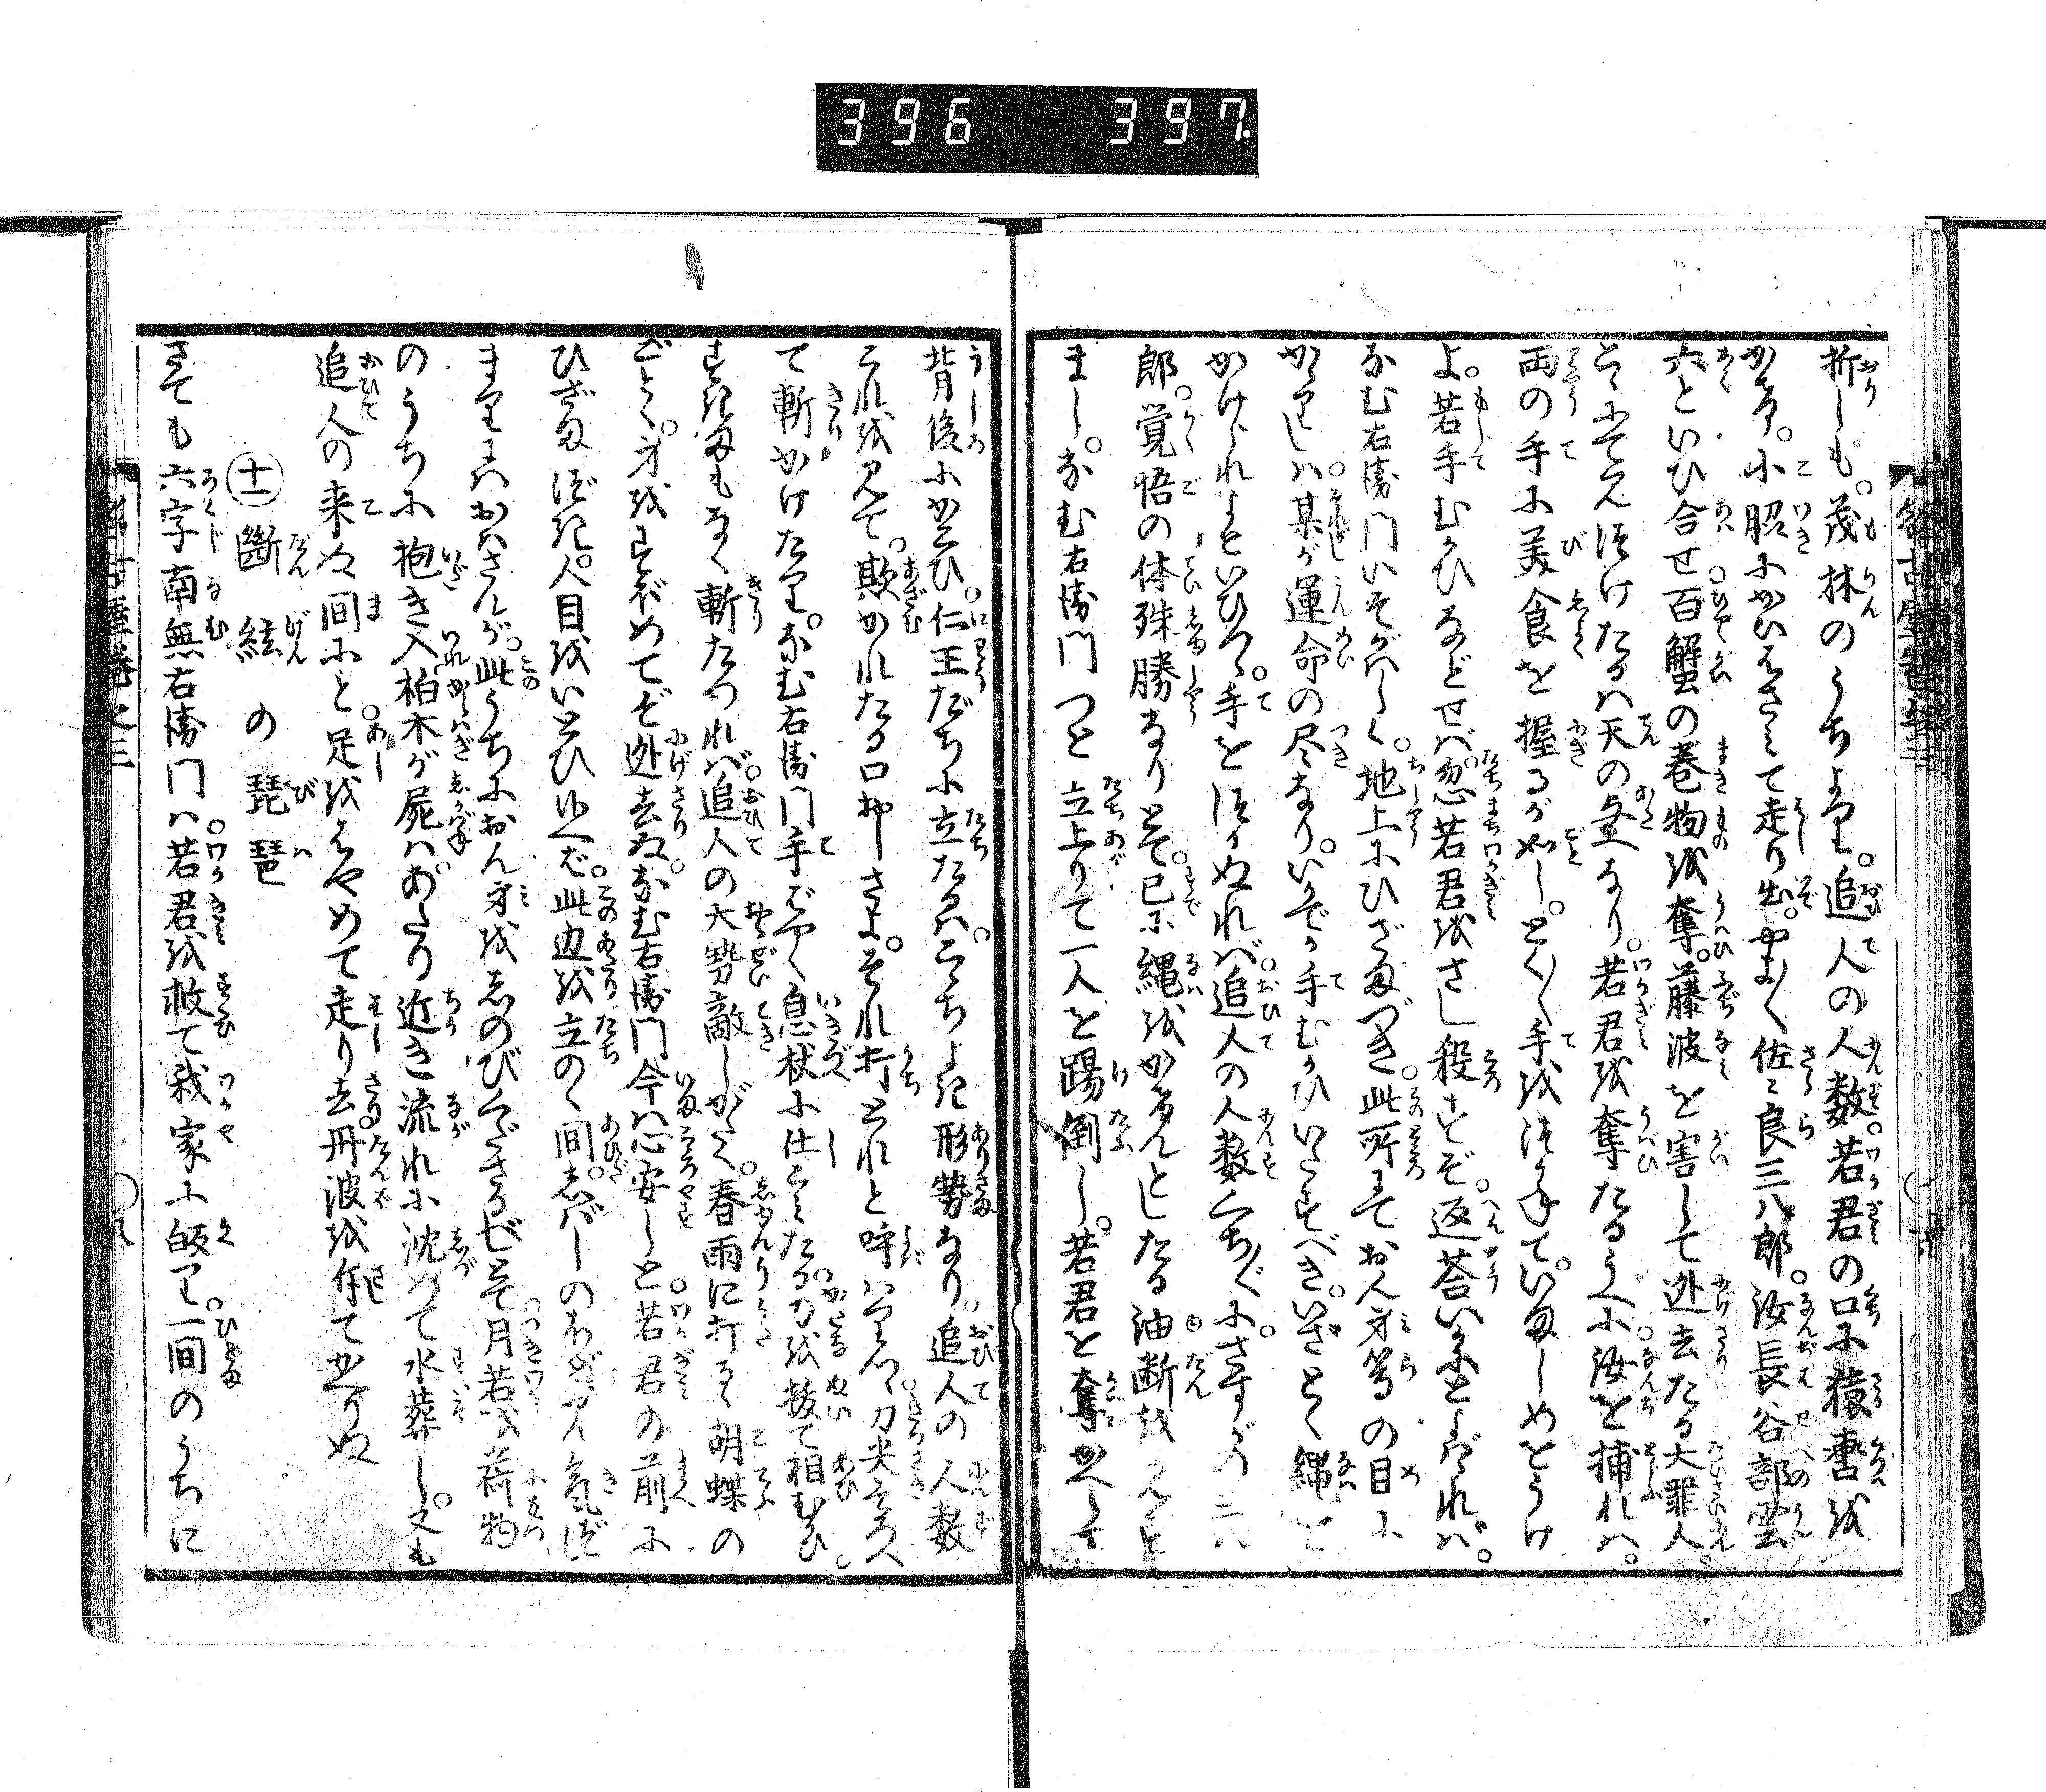 396 397
折しも。茂林のうちより。追人の人数。若君の口に猿轡を
かけ。小腋にかいはさみて走り出。やよ〳〵佐々良三八郎。汝長谷部雲
六といひ合せ百蟹の巻物を奪。藤波を害して迯去たる大罪人。
こゝにて見つけたるは天の与へなり。若君を奪たるうへに。汝を捕れば。
両の手に美食を握るが如し。とく〳〵手をつかねて。いましめをうけ
よ。若手むかひなどせば忽若君をさし殺すぞ。返荅いかにとよばれば。
なむ右衛門いそがはしく。地上にひざまづき。此所にておん身等の目に
かゝりしは某が運命の尽なり。いかでか手むかひいたすべき。いざとく縄を
かけられよといひつゝ。手をつかぬれば追人の人数口ぢ〳〵に。さすが三八
郎。覚悟の体殊勝なりとて。已に縄をかけんとしたる油断を見すま
まし。なむ右衛門つと立上りて一人を踢倒し。若君を奪かへして
背後にかこひ。仁王だちに立たるは。こゝちよき形勢なり。追人の人数
これを見て。欺かれたる口おしさよ。それ打とれと呼はりつゝ。刀尖そろへ
て斬かけたり。なむ右衛門手ばやく息杖に仕こみたる。刀を抜て相むかひ。
すきまもなく斬たつれば。追人の大勢敵しがたく。春雨に打るゝ胡蝶の
ごとく。身をすぼめてぞ迯去ぬ。なむ右衛門今は心安しと。若君の前に
ひざまづき。人目をいとひ候へば。此辺を立のく間。しばしのあひだ気づ
まりにはおはさんが。此うちにおん身をしのびくださるべしとて。月若を荷物
のうちに抱き入。柏木が屍は。あたり近き流れに沈めて水葬し。又も
追人の来ぬ間にと。足をはやめて走り去。丹波をさして出かへりぬ
十一 斷絃の琵琶
さても六字南無右衛門は。若君を救て我家に皈り。一間のうちに